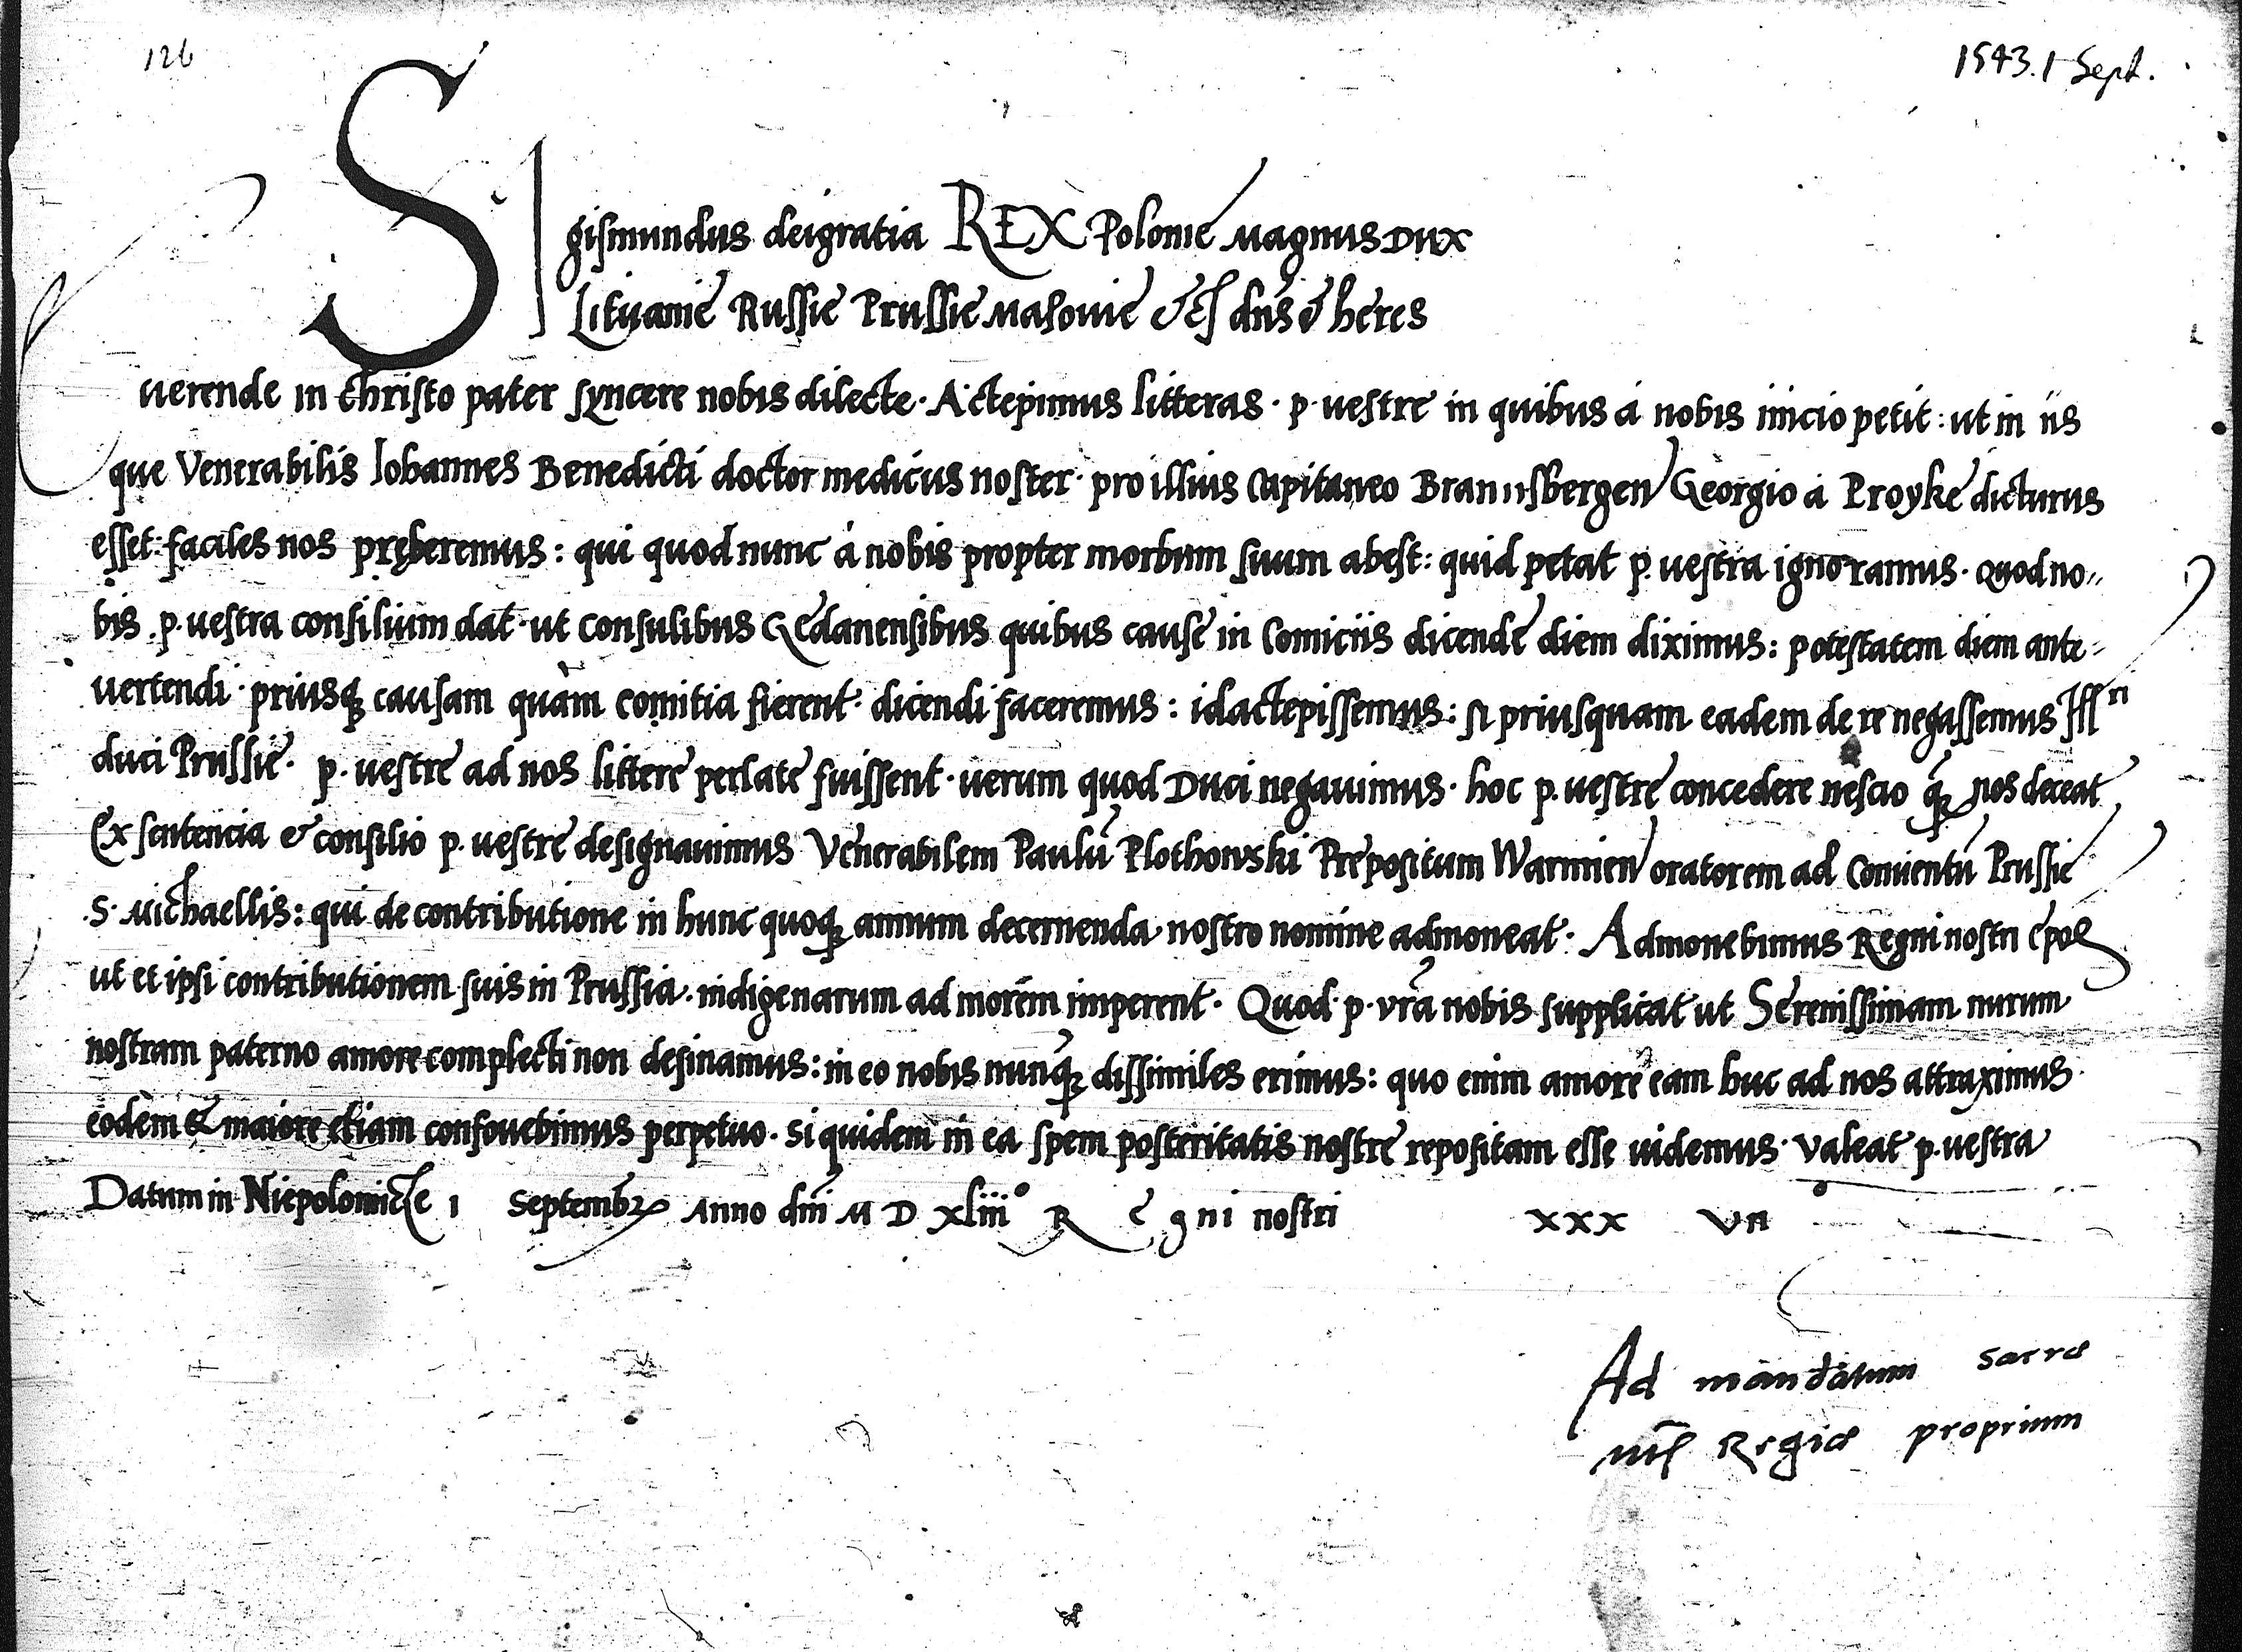 126
1543. 1 Sept.
SIgismundus dei gratia REX Polonie Magnus Dux
Lituanie Russie Prussie Masovie &c dns & heres
uerende in christo pater syncere nobis dilecte. Accepimus litteras. p. uestre in quibus á nobis inicio petit: ut in iis
que Venerabilis Iohannes Benedicti doctor medicus noster pro illius Capitaneo Brannsbergen Georgio á Proyke dicturus
esset: faciles nos pręberemus: qui quod nunc á nobis propter morbum suum abest: quid petat p. uestra ignoramus. Quod no„
bis . p. uestra consilium dat. ut consulibus Gedanensibus quibus cause in Comiciis dicende diem diximus: potestatem diem ante„
uertendi. priusq; causam quàm comitia fierent. dicendi faceremus: id accepissemus: si priusquam eadem de re negassemus Ill^ri
duci Prussie. p. uestre ad nos littere perlate fuissent. uerum quod Duci negauimus. hoc p. uestre concedere nescio q̃; nos deceat
Ex sentencia & consilio p. uestre designauimus Venerabilem Paulũ Plothowski Prepositum Warmien oratorem ad Conuentũ Prussie
.S. Michaellis: qui de contributione in hunc quoq; annum decernenda nostro nomine admoneat. Admonebimus Regni nostri epos
ut et ipsi contributionem suis in Prussia. indigenarum ad morem imperent. Quod. p. vrã nobis supplicat ut Serenissimam nurum
nostram paterno amore complecti non desinamus: in eo nobis nunq̃; dissimiles erimus: quo enim amore eam huc ad nos attraximus
eodem & maiore etiam confouebimus perpetuo. Si quidem in ea spem posteritatis nostre repositam esse uidemus. Valeat p. uestra
Datum in Niepolomicze 1 Septembr Anno dñi M D xliii° Regni nostri xxx vii
Ad mandatum sacrae
mtis Regiae proprium